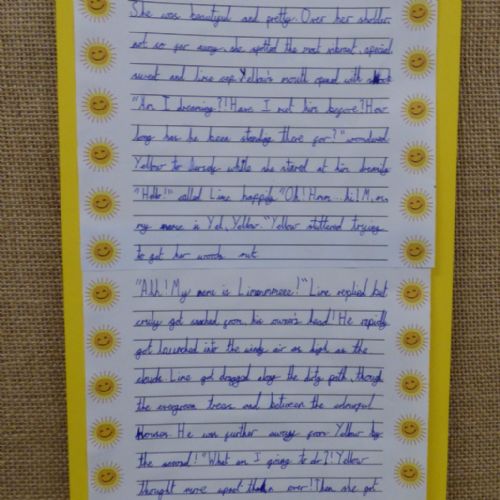 She was beautiful and pretty. Over her sholder,
not so far away, she spotted the most vibrant, special
sweet and lime cap. Yellow's mouth opend with
"Am I dreaming?! Have I met him before? How
long has he been standing there for?" wondered
Yellow to herself while she stared at him dreamily
"Hello!" called Lime happily. "Oh! Hmm... hi! M, m,
my name is Yel, Yellow." Yellow stuttered trying
to get her words out
"Ahh! My name is Limemmeee!" Lime replied but
got from his owner's head! He rapidly
got launched into the windy air as high as the
clouds. Line got dragged along the dirty path, though
the evergreen trees and between the colourful
houses. He was further away from Yellow by
the second! "What am I going to do?! Yellow
thought more upset than ever! Then she got